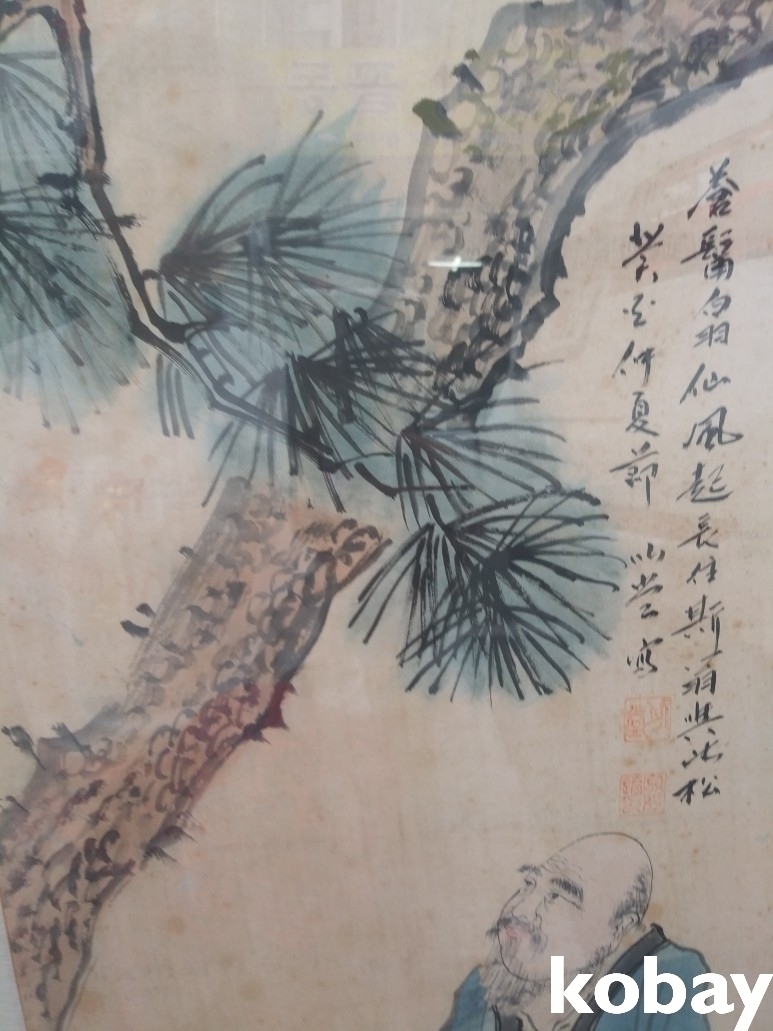 蒼髥白羽仙風起長住斯與此松
癸亥仲夏節 小堂寫
kobay